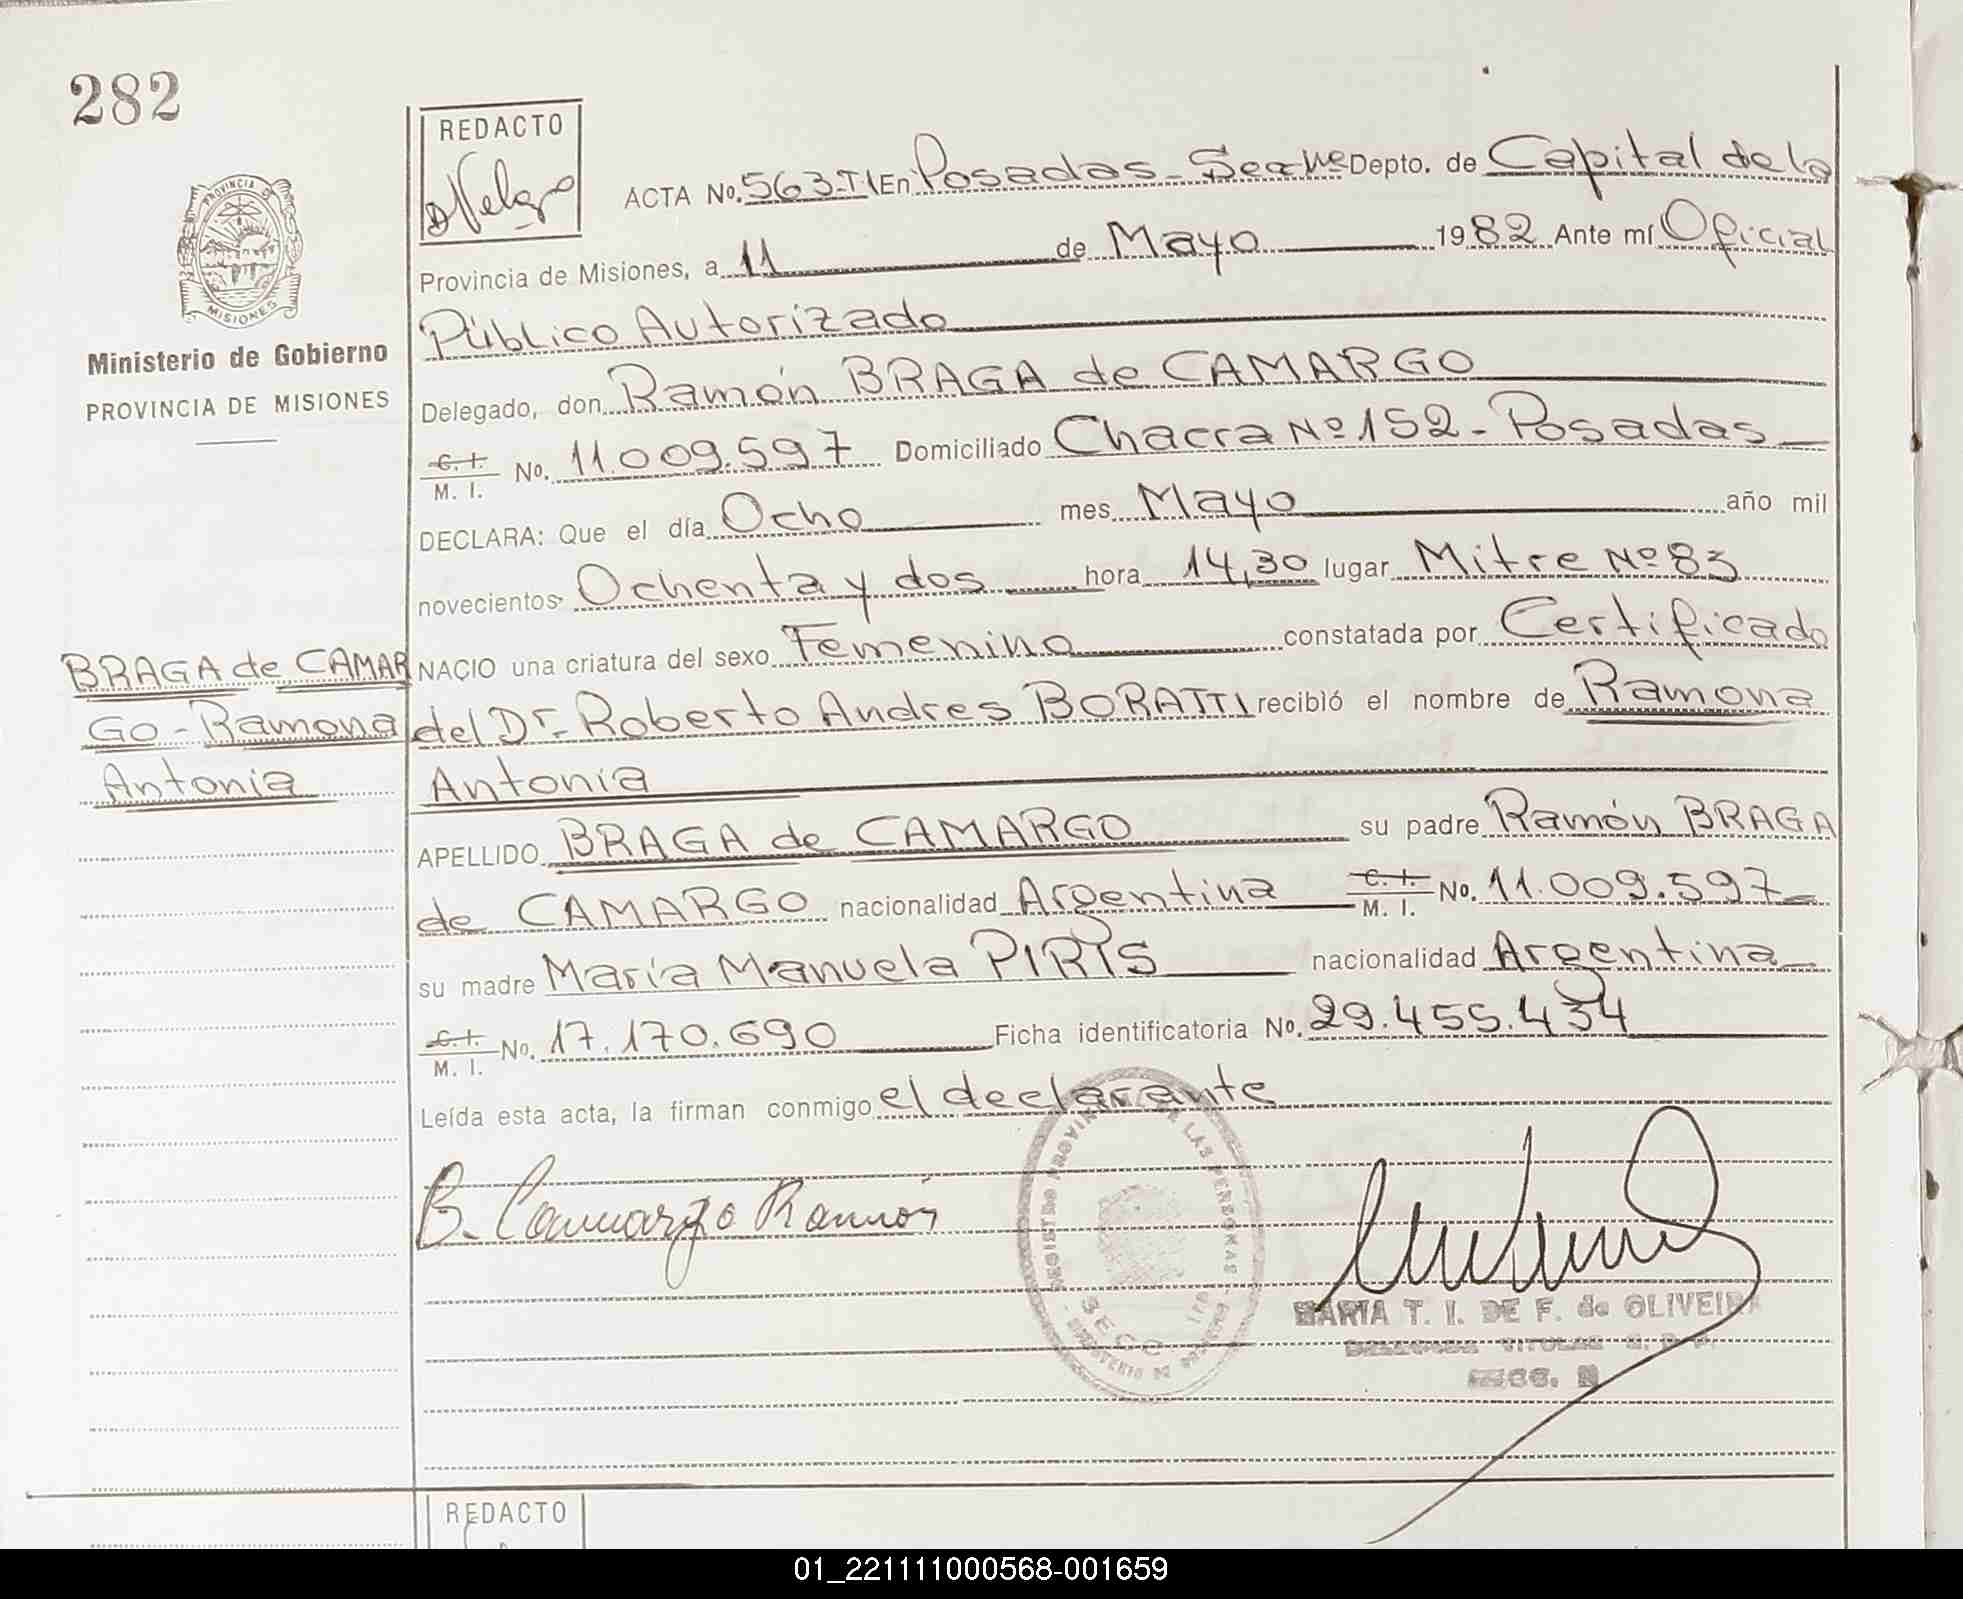 282
REDACTO
PROVINCIA DE
MISIONES
Ministerio de Gobierno
PROVINCIA DE MISIONES
ACTA No. 563-T.I En Posadas - Depto. de Capital de la
Provincia de Misiones, a 11 de Mayo 1982 Ante mí Oficial
Público Autorizado
Delegado, don Ramón BRAGA de CAMARGO
C. I.
M. I. No. 11.009.597 Domiciliado Chacra Nº 152 - Posadas
DECLARA: Que el día Ocho mes Mayo año mil
novecientos Ochenta y dos hora 14,30 lugar Mitre Nº 83
NACIO una criatura del sexo Femenino constatada por Certificado
del Dr. Roberto Andres BORATTI recibió el nombre de Ramona
Antonia
BRAGA de CAMAR
GO - Ramona
Antonia
APELLIDO BRAGA de CAMARGO su padre Ramón BRAGA
de CAMARGO nacionalidad Argentina C. I.
M. I. No. 11.009.597
su madre María Manuela PIRIS nacionalidad Argentina
C. I.
M. I. No. 17.170.690 Ficha identificatoria No. 29.455.434
Leída esta acta, la firman conmigo el declarante
B. Camargo Ramón
MARIA T. I. DE F. de OLIVEIRA
REDACTO
01_221111000568-001659